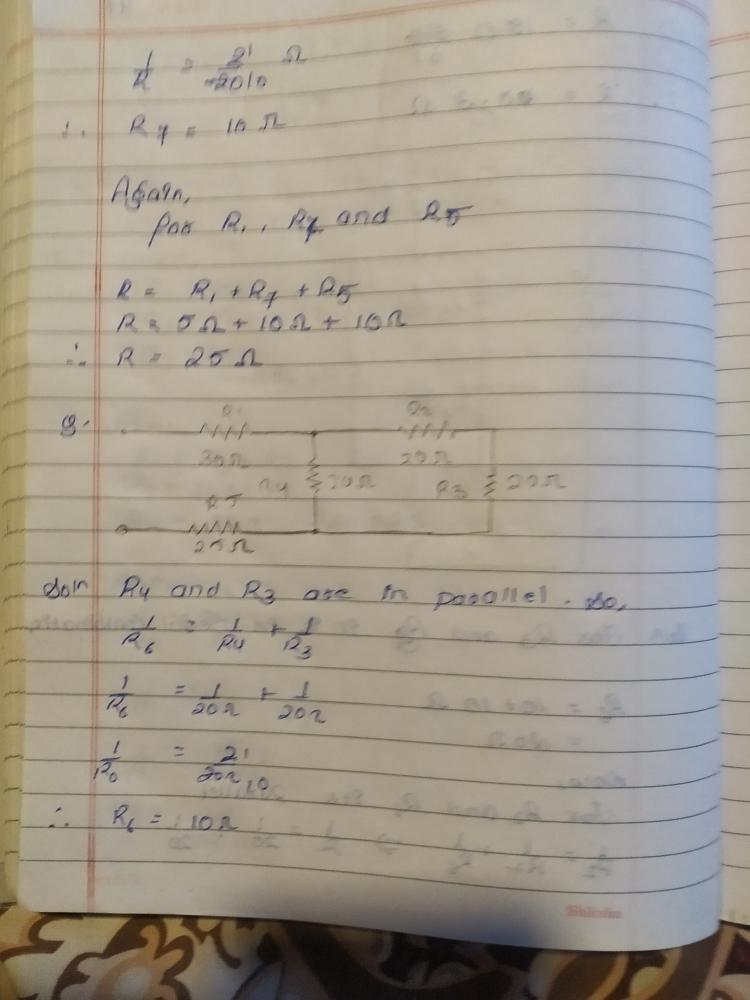 1/R = 2 1/20 10 Ω
∴ R7 = 10 Ω
Again,
for R1, R7 and R5
R = R1 + R7 + R5
R = 5Ω + 10Ω + 10Ω
∴ R = 25 Ω
9.
R1 R2
30Ω 20Ω
R4 20Ω R3 20Ω
R5
25Ω
Soln R4 and R3 are in parallel. So,
1/R6 = 1/R4 + 1/R3
1/R6 = 1/20Ω + 1/20Ω
1/R6 = 2 1/20Ω 10
∴ R6 = 10Ω
Shiksha